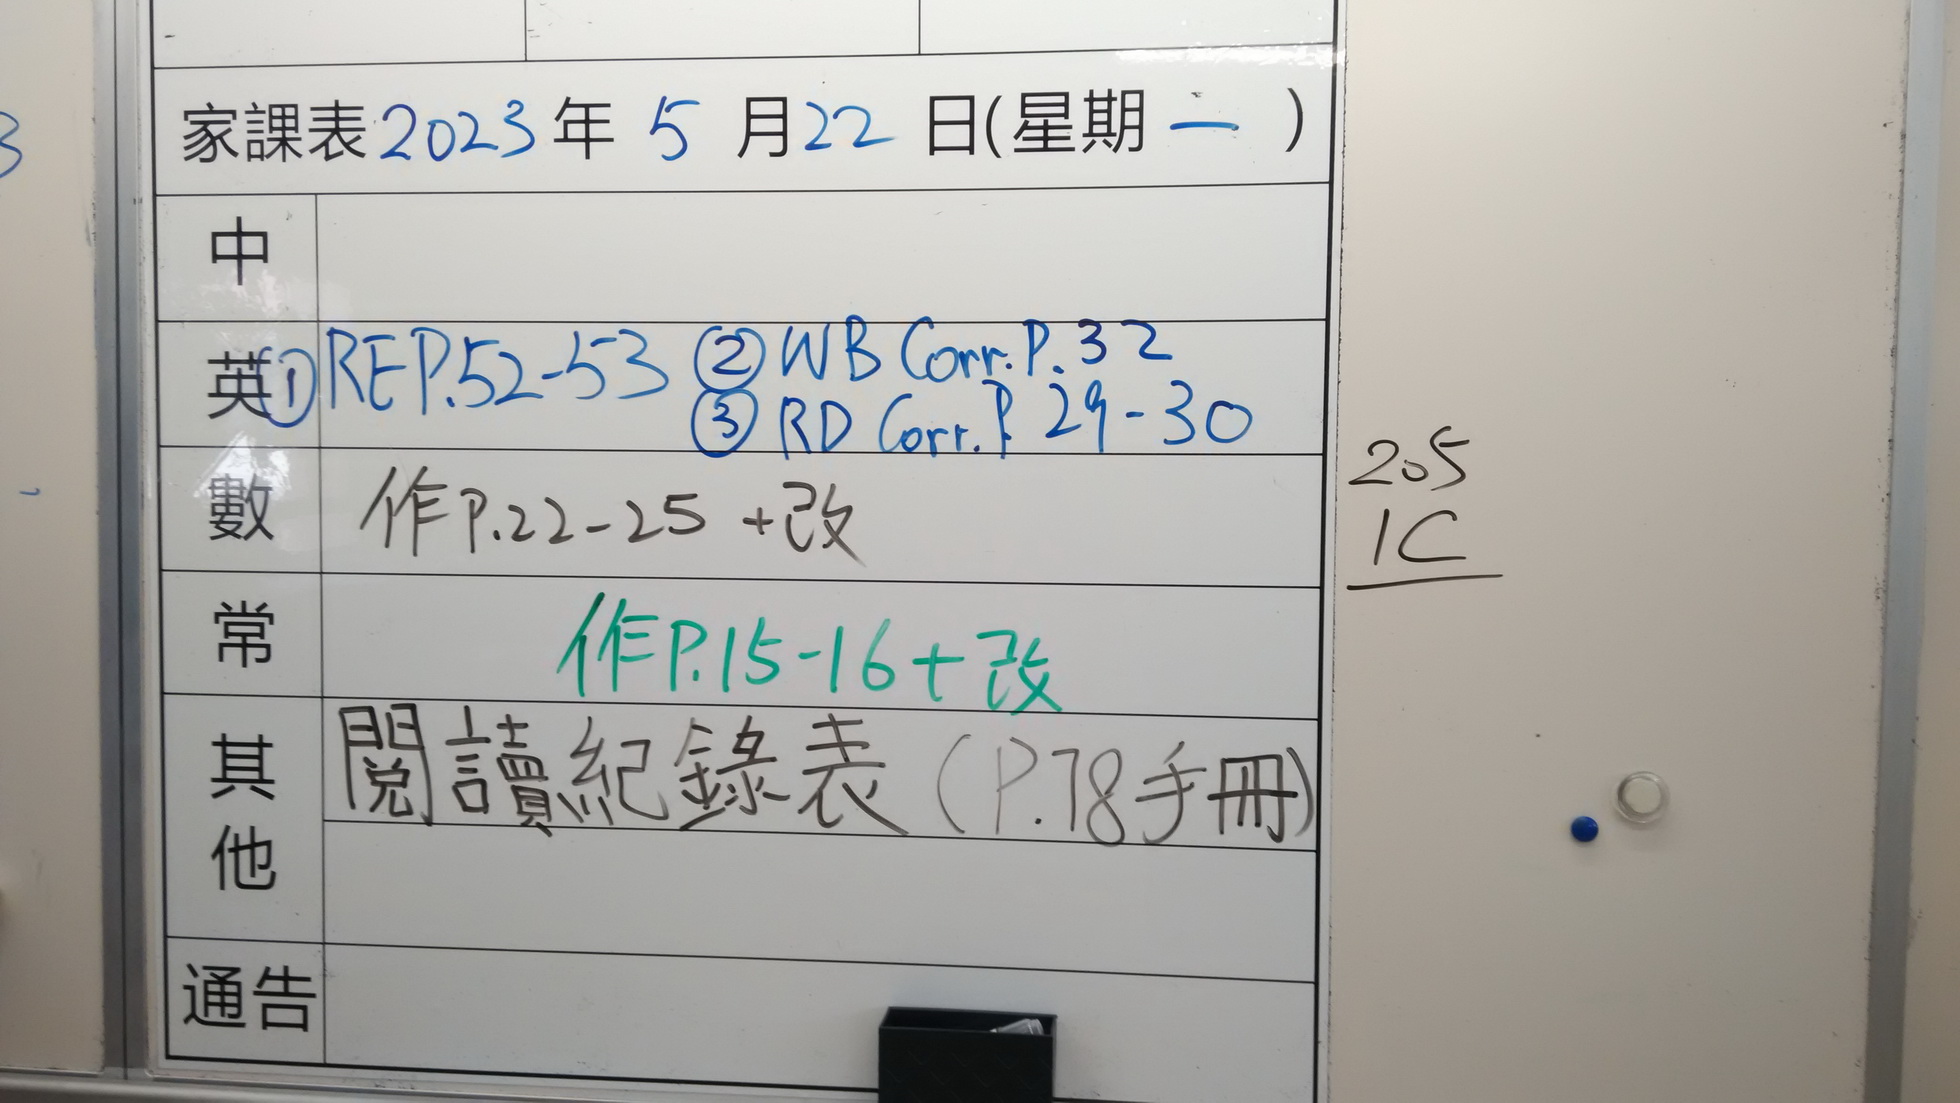 家課表2023年 5 月22 日(星期 一 )
中
英 ① REP.52-53 ② WB Corr.P.32
③ RD Corr.P 29-30
數 作P.22-25 +改
常 作P.15-16+改
其他 閱讀紀錄表(P.78手冊)
通告
205
1C
3